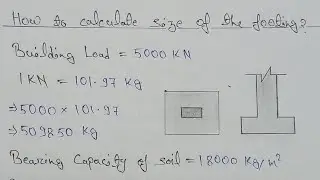 How to calculate size of the footing?
Building Load = 5000 KN
1 KN = 101.97 kg
⇒ 5000 × 101.97
⇒ 509850 kg
Bearing Capacity of soil = 18000 KG/m²